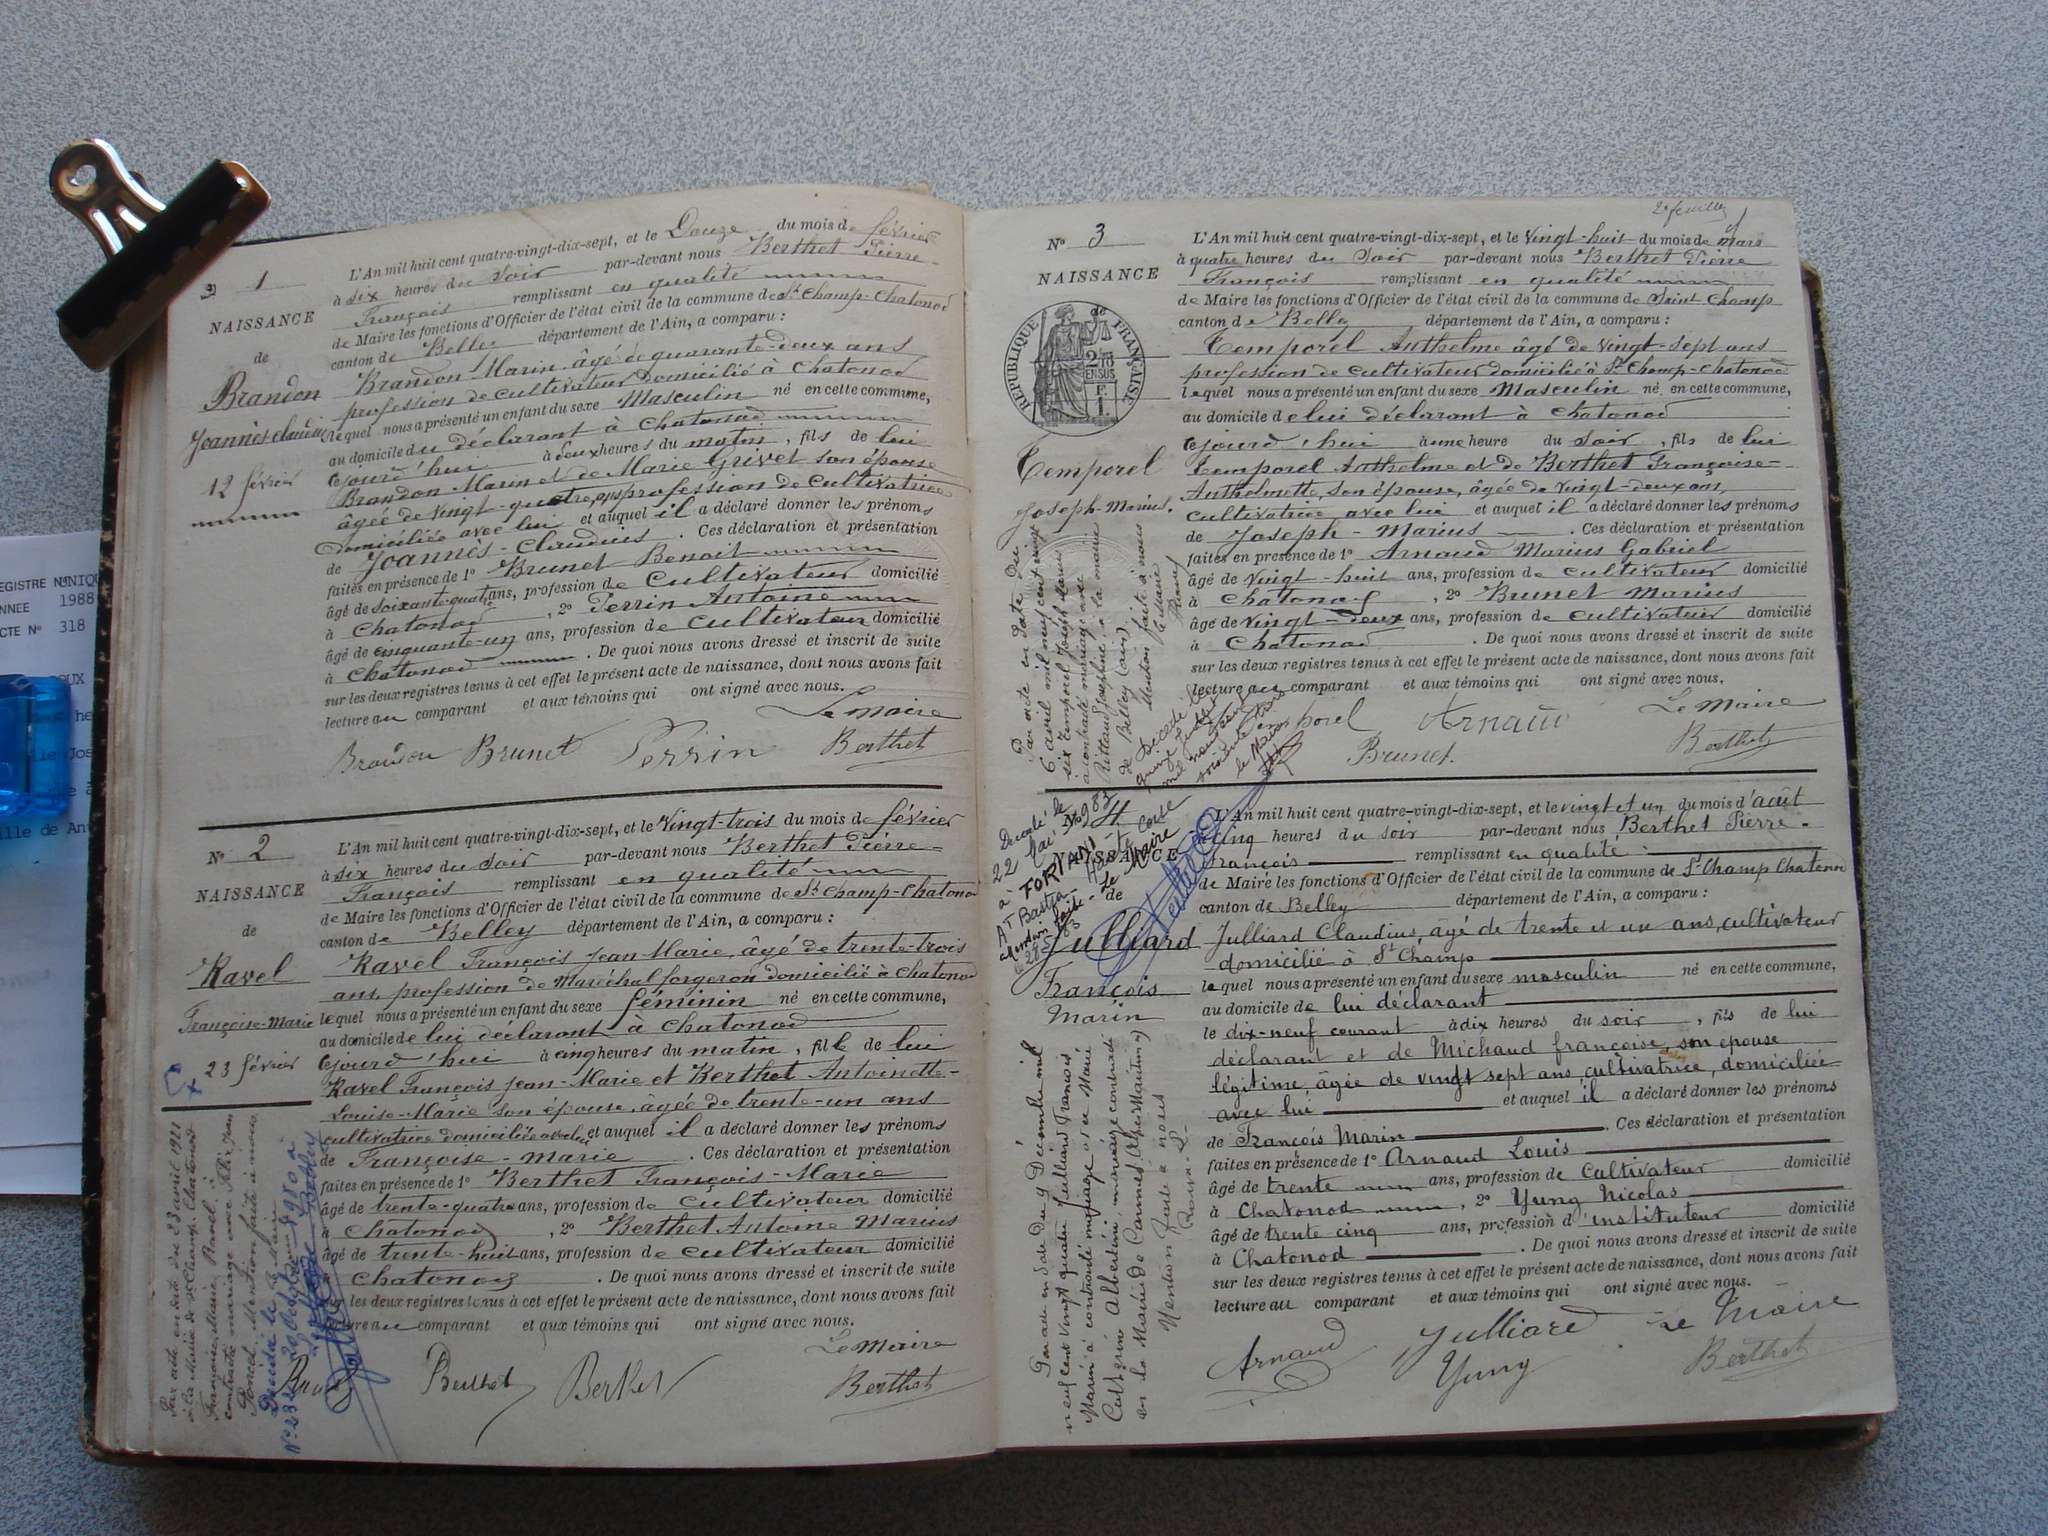 N° 1
NAISSANCE
de
Brandon
Joannès Claudius
12 février
L'An mil huit cent quatre-vingt-dix-sept, et le Douze du mois de février
à six heures du soir par-devant nous Berthet Pierre-
François remplissant en qualité
de Maire les fonctions d'Officier de l'état civil de la commune de St Champ-Chatonod
canton de Belley département de l'Ain, a comparu :
Brandon Marin, âgé de quarante-deux ans
profession de cultivateur domicilié à Chatonod
lequel nous a présenté un enfant du sexe Masculin né en cette commune,
au domicile du déclarant à Chatonod
cejourd'hui à deux heures du matin, fils de lui
Brandon Marin et de Marie Grivet son épouse
âgée de vingt-quatre ans profession de cultivatrice
domiciliée avec lui et auquel il a déclaré donner les prénoms
de Joannès-Claudius. Ces déclaration et présentation
faites en présence de 1° Brunet Benoit
âgé de soixante-quatre ans, profession de cultivateur domicilié
à Chatonod, 2° Perrin Antoine
âgé de cinquante-un ans, profession de cultivateur domicilié
à Chatonod. De quoi nous avons dressé et inscrit de suite
sur les deux registres tenus à cet effet le présent acte de naissance, dont nous avons fait
lecture au comparant et aux témoins qui ont signé avec nous.
Le Maire
Brandon Brunet Perrin Berthet
N° 2
NAISSANCE
de
Ravel
Françoise-Marie
23 février
L'An mil huit cent quatre-vingt-dix-sept, et le vingt-trois du mois de février
à six heures du soir par-devant nous Berthet Pierre-
François remplissant en qualité
de Maire les fonctions d'Officier de l'état civil de la commune de St Champ-Chatonod
canton de Belley département de l'Ain, a comparu :
Ravel François Jean-Marie, âgé de trente-trois
ans, profession de Maréchal forgeron domicilié à Chatonod
lequel nous a présenté un enfant du sexe féminin né en cette commune,
au domicile de lui déclarant à Chatonod
cejourd'hui à cinq heures du matin, fille de lui
Ravel François Jean-Marie et Berthet Antoinette-
Louise-Marie son épouse, âgée de trente-un ans
cultivatrice domiciliée avec lui et auquel il a déclaré donner les prénoms
de Françoise-Marie. Ces déclaration et présentation
faites en présence de 1° Berthet François-Marie
âgé de trente-quatre ans, profession de cultivateur domicilié
à Chatonod, 2° Berthet Antoine Marius
âgé de trente-huit ans, profession de cultivateur domicilié
à Chatonod. De quoi nous avons dressé et inscrit de suite
sur les deux registres tenus à cet effet le présent acte de naissance, dont nous avons fait
lecture au comparant et aux témoins qui ont signé avec nous.
Le Maire
Ravel Berthet Berthet Berthet
Par acte en date du 23 avril 1921
à la Mairie de St Champ-Chatonod
Françoise Marie Ravel a
contracté mariage avec Félix Jean
Poncet. Mention faite à nous
Le Maire
Décédée le
20 Octobre 1980 à
Belley
N° 23
2e feuille
N° 3
NAISSANCE
de
RÉPUBLIQUE FRANÇAISE
Temporel
Joseph-Marius.
L'An mil huit cent quatre-vingt-dix-sept, et le vingt-huit du mois de mars
à quatre heures du soir par-devant nous Berthet Pierre
François remplissant en qualité
de Maire les fonctions d'Officier de l'état civil de la commune de Saint Champ
canton de Belley département de l'Ain, a comparu :
Temporel Anthelme âgé de vingt-sept ans
profession de cultivateur domicilié à St Champ-Chatonod
lequel nous a présenté un enfant du sexe Masculin né en cette commune,
au domicile de lui déclarant à Chatonod
cejourd'hui à une heure du soir, fils de lui
Temporel Anthelme et de Berthet Françoise-
Anthelmette, son épouse, âgée de vingt-deux ans,
cultivatrice avec lui et auquel il a déclaré donner les prénoms
de Joseph-Marius. Ces déclaration et présentation
faites en présence de 1° Arnaud Marius Gabriel
âgé de vingt-huit ans, profession de cultivateur domicilié
à Chatonod, 2° Brunet Marius
âgé de vingt-deux ans, profession de cultivateur domicilié
à Chatonod. De quoi nous avons dressé et inscrit de suite
sur les deux registres tenus à cet effet le présent acte de naissance, dont nous avons fait
lecture au comparant et aux témoins qui ont signé avec nous.
Temporel Arnaud Le Maire
Brunet. Berthet
Par acte en date du
6 avril mil neuf cent vingt
six Temporel Joseph Marius
a contracté mariage avec
Josephine, à la mairie
de Belley (Ain)
Mention faite à nous
Décédé le
le Maire
N° 4
NAISSANCE
de
Julliard
François
Marin
Décédé le
22 Mai 1983
à FORNANI
AT Bastia - Haute Corse
Mention faite - Le Maire
L'An mil huit cent quatre-vingt-dix-sept, et le vingt et un du mois d'août
à cinq heures du soir par-devant nous Berthet Pierre-
François remplissant en qualité
de Maire les fonctions d'Officier de l'état civil de la commune de St Champ Chatonod
canton de Belley département de l'Ain, a comparu :
Julliard Claudius, âgé de trente et un ans, cultivateur
domicilié à St Champ
lequel nous a présenté un enfant du sexe masculin né en cette commune,
au domicile de lui déclarant
le dix-neuf courant à dix heures du soir, fils de lui
déclarant et de Michaud françoise, son epouse
légitime, âgée de vingt sept ans, cultivatrice, domiciliée
avec lui et auquel il a déclaré donner les prénoms
de François Marin. Ces déclaration et présentation
faites en présence de 1° Arnaud Louis
âgé de trente ans, profession de cultivateur domicilié
à Chatonod, 2° Yung Nicolas
âgé de trente cinq ans, profession d'instituteur domicilié
à Chatonod. De quoi nous avons dressé et inscrit de suite
sur les deux registres tenus à cet effet le présent acte de naissance, dont nous avons fait
lecture au comparant et aux témoins qui ont signé avec nous.
Arnaud Julliard Le Maire
Yung Berthet
Par acte en date du 9 Décembre mil
neuf cent vingt quatre Julliard François
Marin a contracté mariage avec Marie
Albertini, mariage contracté
en la Mairie de Cannes (Alpes Maritimes)
Mention faite à nous
REGISTRE N° UNIQUE
ANNEE 1988
ACTE N° 318